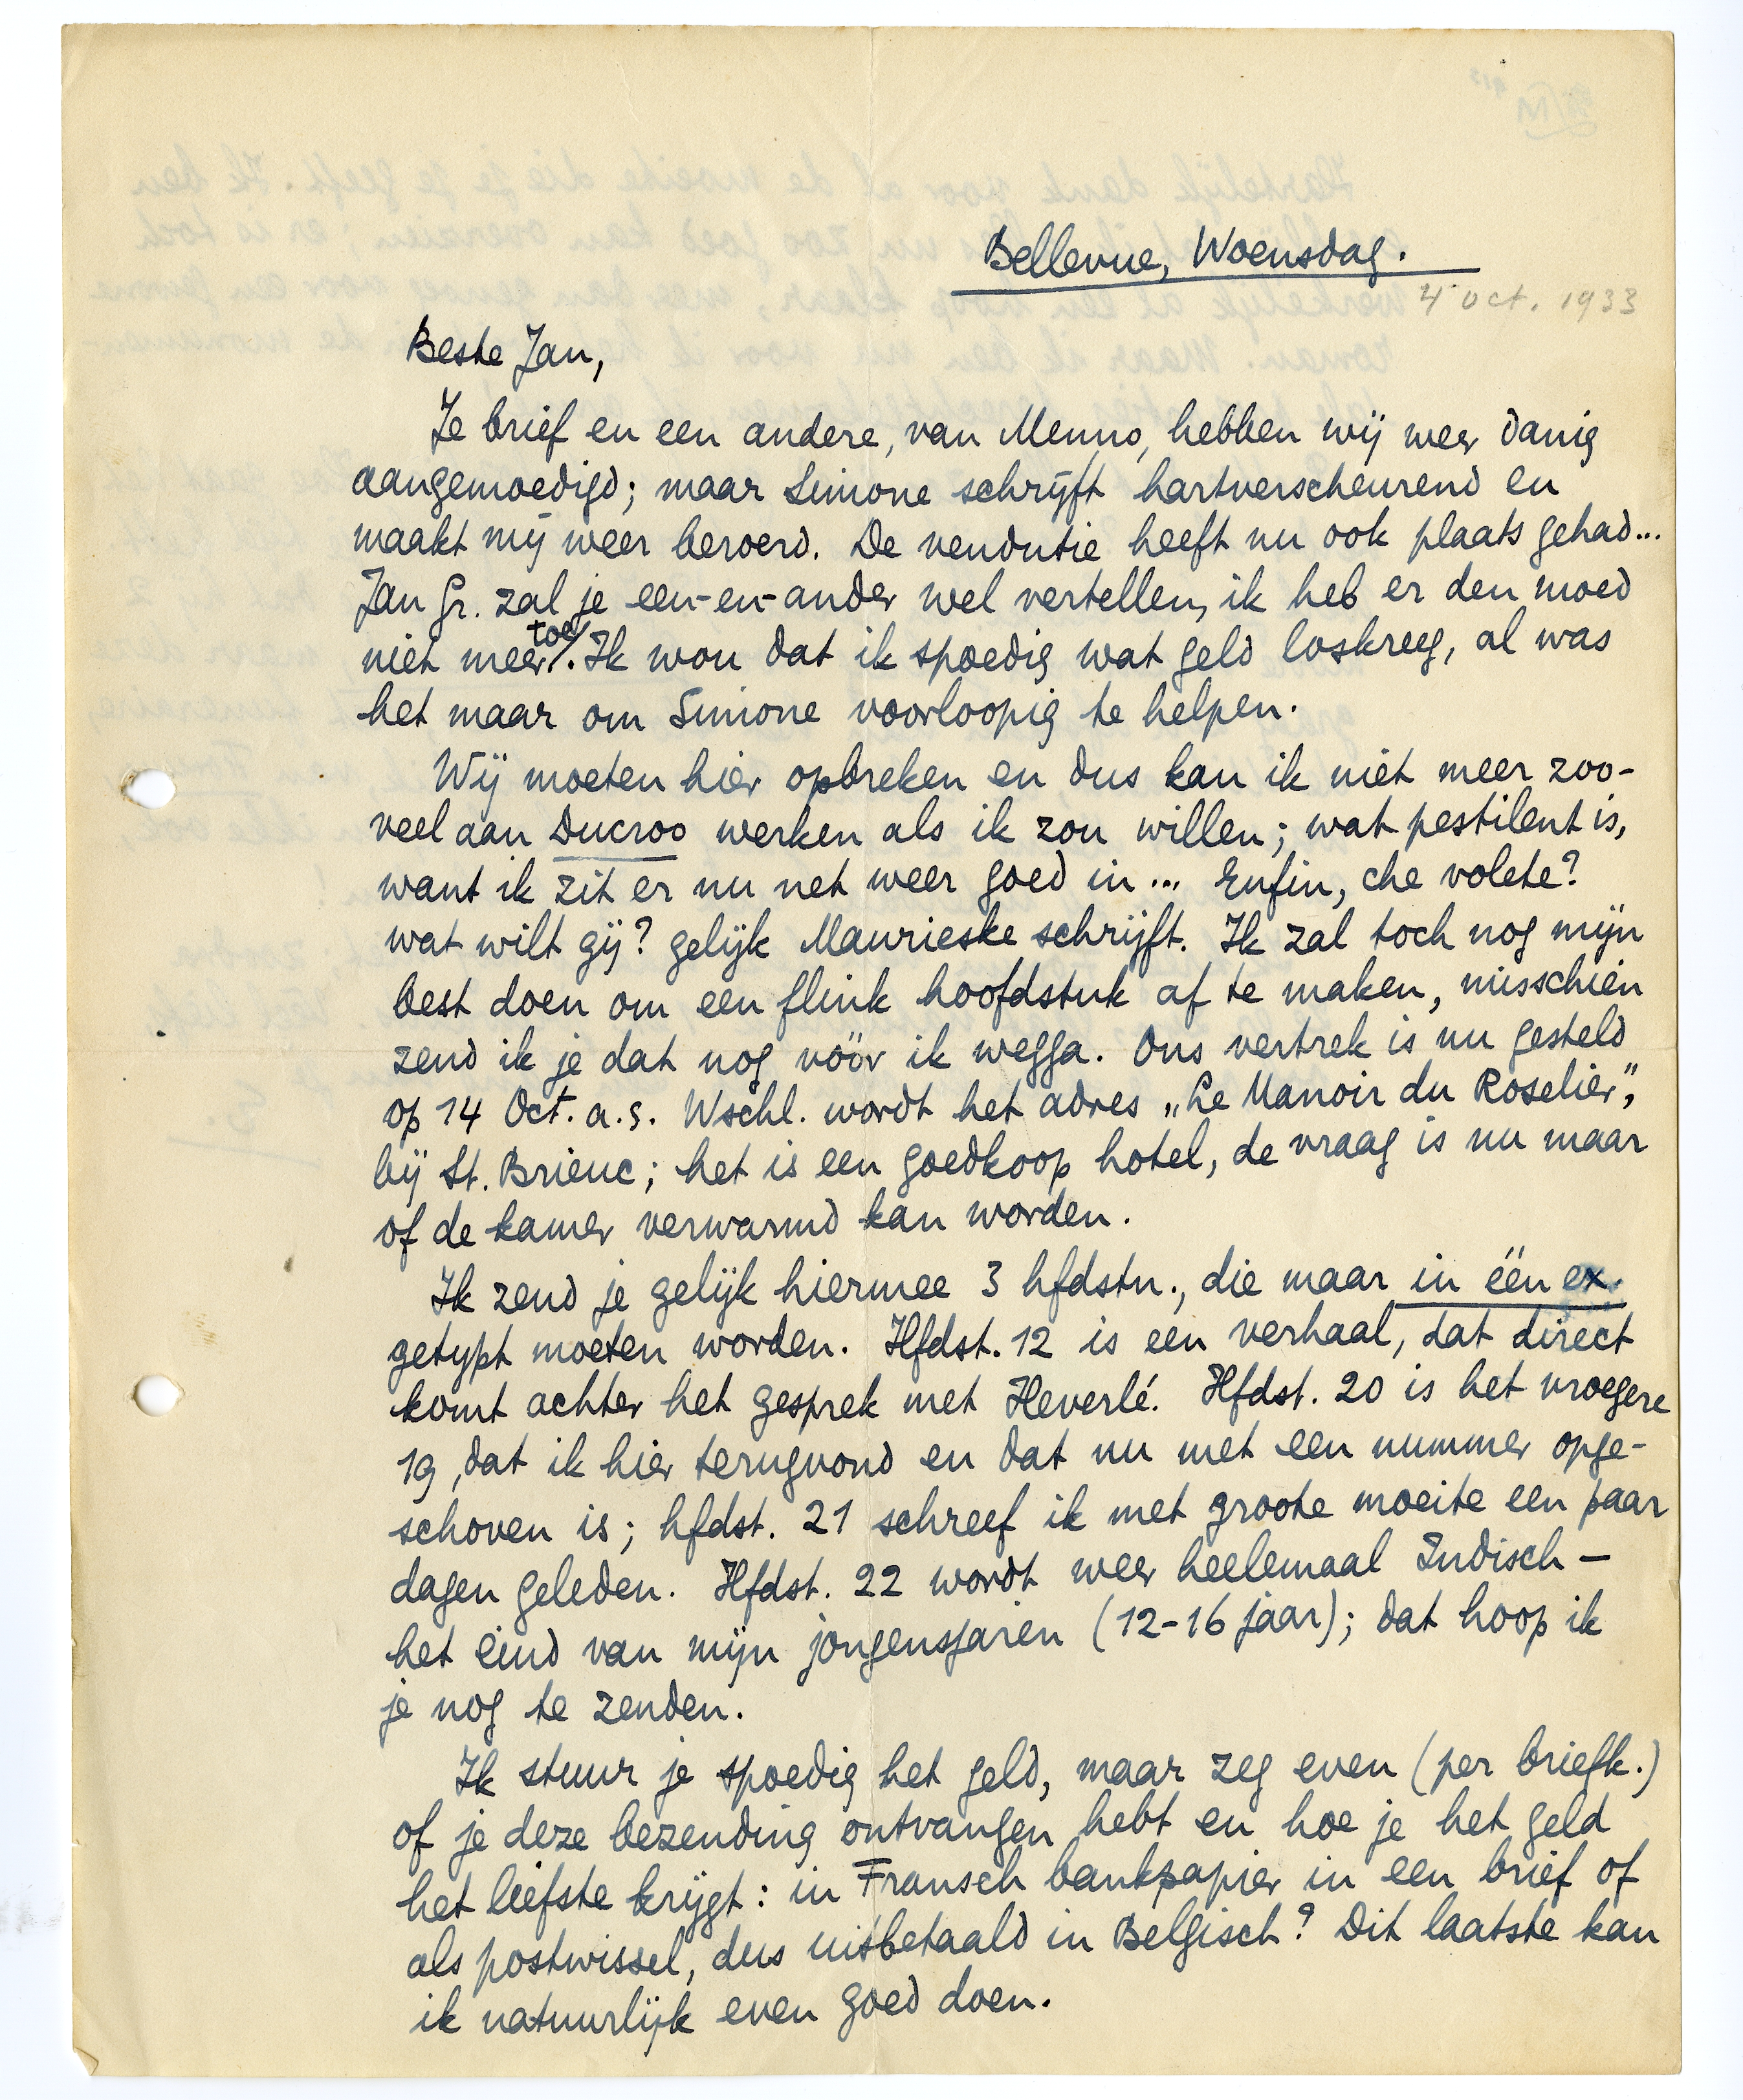 Bellevue, Woensdag.
4 oct. 1933
Beste Jan,
Je brief en een andere, van Menno, hebben wij weer danig
aangemoedigd; maar Simone schrijft hartverscheurend en
maakt mij weer beroerd. De vendutie heeft nu ook plaats gehad...
Jan Gr. zal je een-en-ander wel vertellen, ik heb er den moed
niet meer toe. Ik wou dat ik spoedig wat geld loskreeg, al was
het maar om Simone voorloopig te helpen.
Wij moeten hier opbreken en dus kan ik niet meer zoo-
veel aan Ducroo werken als ik zou willen; wat pestilent is,
want ik zit er nu net weer goed in... Enfin, che volete?
wat wilt gij? gelijk Maurieske schrijft. Ik zal toch nog mijn
best doen om een flink hoofdstuk af te maken, misschien
zend ik je dat nog vóór ik wegga. Ons vertrek is nu gesteld
op 14 Oct. a.s. Wschl. wordt het adres „Le Manoir du Roselier",
bij St. Brieuc; het is een goedkoop hotel, de vraag is nu maar
of de kamer verwarmd kan worden.
Ik zend je gelijk hiermee 3 hfdstn., die maar in één ex.
getypt moeten worden. Hfdst. 12 is een verhaal, dat direct
komt achter het gesprek met Heverlé. Hfdst. 20 is het vroegere
19, dat ik hier terugvond en dat nu met een nummer opge-
schoven is; hfdst. 21 schreef ik met groote moeite een paar
dagen geleden. Hfdst. 22 wordt weer heelemaal Indisch —
het eind van mijn jongensjaren (12-16 jaar); dat hoop ik
je nog te zenden.
Ik stuur je spoedig het geld, maar zeg even (per briefk.)
of je deze bezending ontvangen hebt en hoe je het geld
het liefste krijgt: in Fransch bankpapier in een brief of
als postwissel, dus uitbetaald in Belgisch? Dit laatste kan
ik natuurlijk even goed doen.